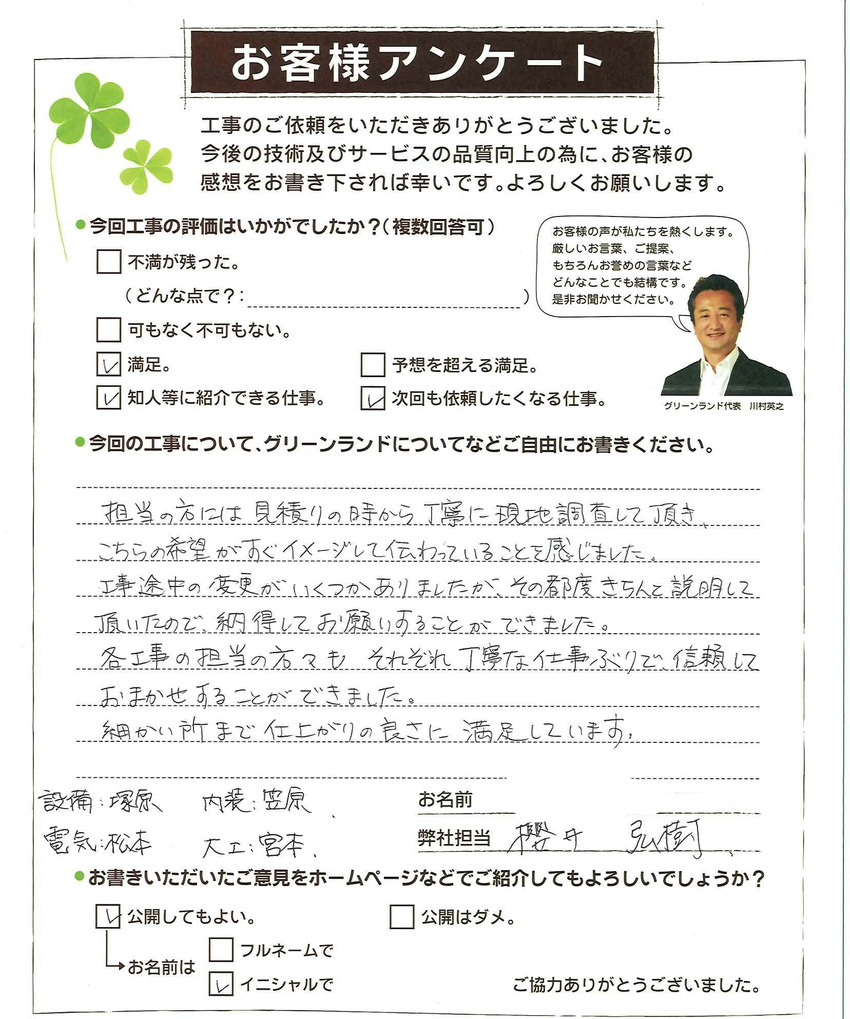 お客様アンケート
工事のご依頼をいただきありがとうございました。
今後の技術及びサービスの品質向上の為に、お客様の
感想をお書き下されば幸いです。よろしくお願いします。
●今回工事の評価はいかがでしたか？（複数回答可）
不満が残った。
（どんな点で？： ）
可もなく不可もない。
満足。 予想を超える満足。
知人等に紹介できる仕事。 次回も依頼したくなる仕事。
お客様の声が私たちを熱くします。
厳しいお言葉、ご提案、
もちろんお誉めの言葉など
どんなことでも結構です。
是非お聞かせください。
グリーンランド代表 川村英之
●今回の工事について、グリーンランドについてなどご自由にお書きください。
担当の方には見積りの時から丁寧に現地調査して頂き、
こちらの希望がすぐイメージして伝わっていることを感じました。
工事途中の変更がいくつかありましたが、その都度きちんと説明して
頂いたので、納得してお願いすることができました。
各工事の担当の方々も それぞれ丁寧な仕事ぶりで、信頼して
おまかせすることができました。
細かい所まで仕上がりの良さに 満足しています。
設備：塚原 内装：笠原、
電気：松本 大工：宮本、
お名前
弊社担当 櫻井 弘樹、
●お書きいただいたご意見をホームページなどでご紹介してもよろしいでしょうか？
公開してもよい。 公開はダメ。
お名前は
フルネームで
イニシャルで
ご協力ありがとうございました。